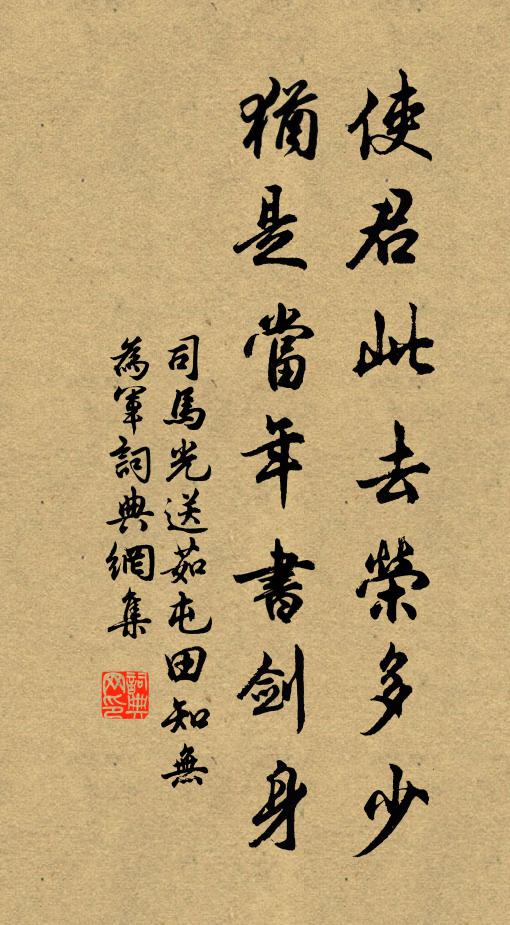 使君此去榮多少
猶是當年書劍身
司馬光送茹屯田知無
為軍詞典網集
詞典網印